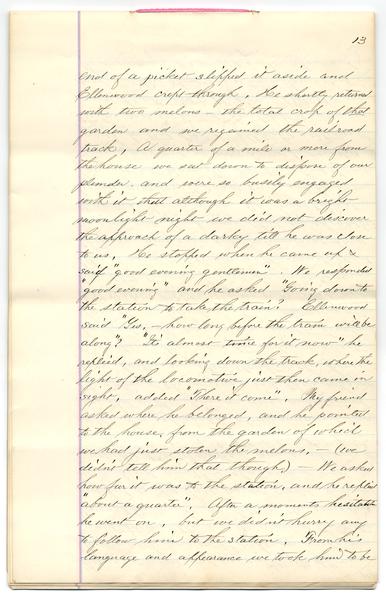 13
end of a picket slipped it aside and
Ellenwood crept through. He shortly returned
with two melons — the total crop of that
garden and we regained the railroad
track. A quarter of a mile or more from
the house we sat down to dispose of our
plunder and were so busily engaged
with it that although it was a bright
moonlight night we did not discover
the approach of a darky till he was close
to us. He stopped when he came up &
said "good evening gentlemen". We responded
"good evening" and he asked "Going down to
the station to take the train? Ellenwood
said "Yes, — how long before the train will be
along"? "It's almost time for it now" he
replied, and looking down the track, where the
light of the locomotive just then came in
sight, added "There it come". My friend
asked where he belonged, and he pointed
to the house, from the garden of which
we had just stolen the melons, — (we
didn't tell him that though) — We asked
how far it was to the station, and he replied
"about a quarter". After a moments hesitation
he went on, but we did n't hurry any
to follow him to the station. From his
language and appearance we took him to be